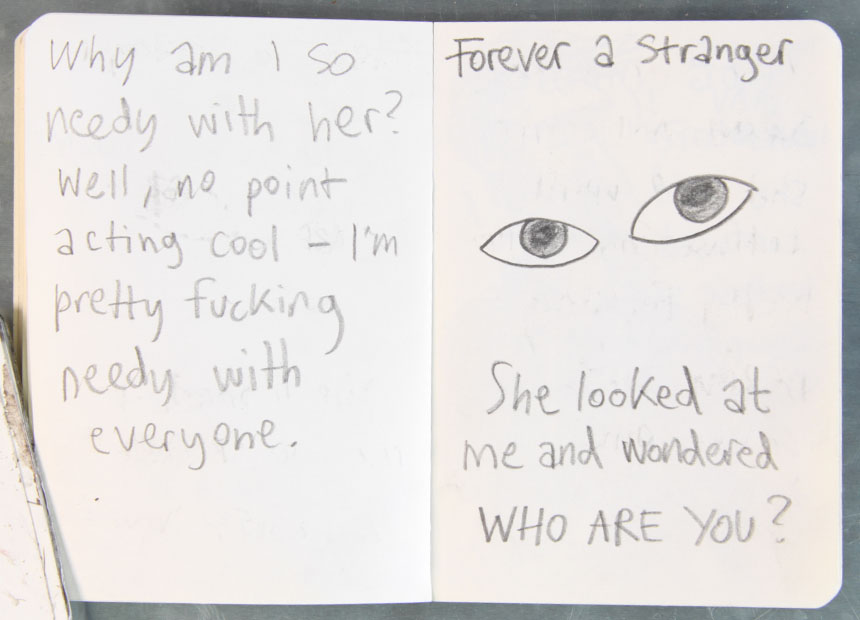 Why am I so
needy with her?
Well, no point
acting cool – I'm
pretty fucking
needy with
everyone.
Forever a Stranger
She looked at
me and wondered
WHO ARE YOU?